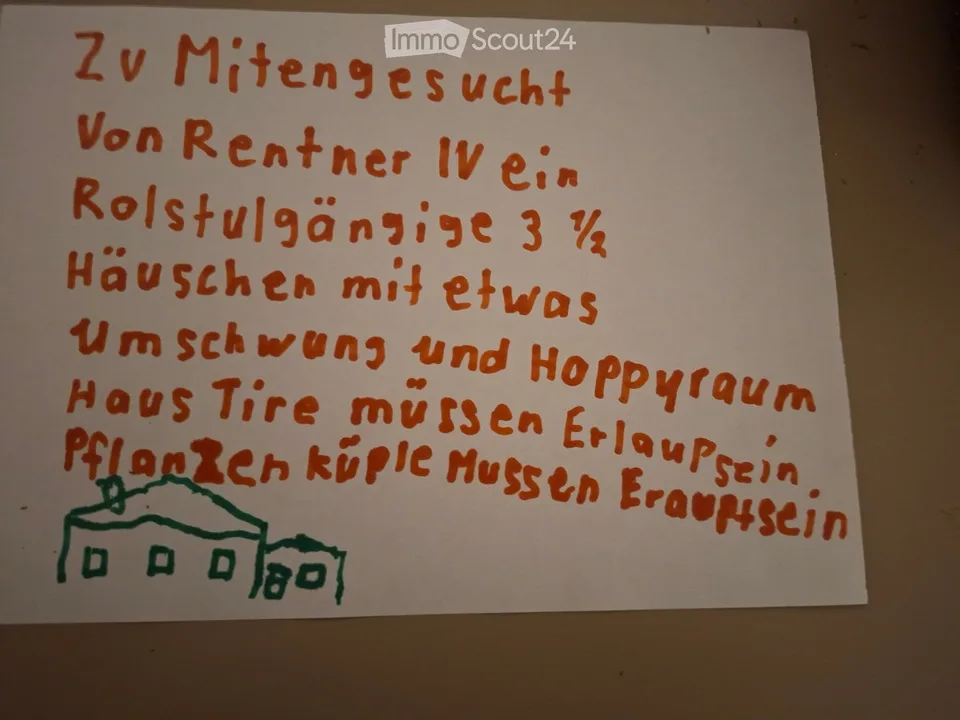 ImmoScout24
Zu Mitengesucht
Von Rentner IV ein
Rolstulgängige 3 ½
Häuschen mit etwas
Umschwung und Hoppyraum
Haus Tire müssen Erlaupsein
Pflanzen küple Mussen Erauptsein